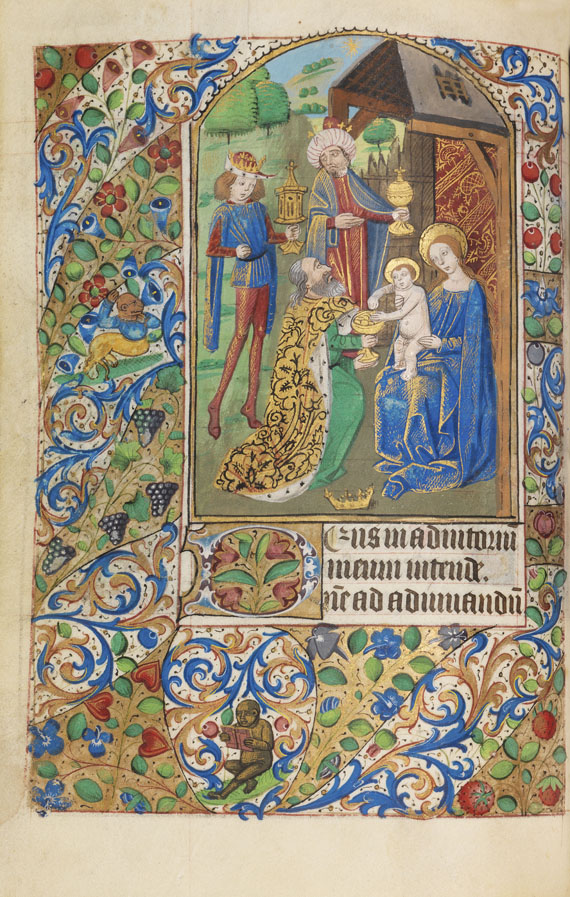 Deus in adiutoriū
meum intende.
Dñe ad adiuuandū